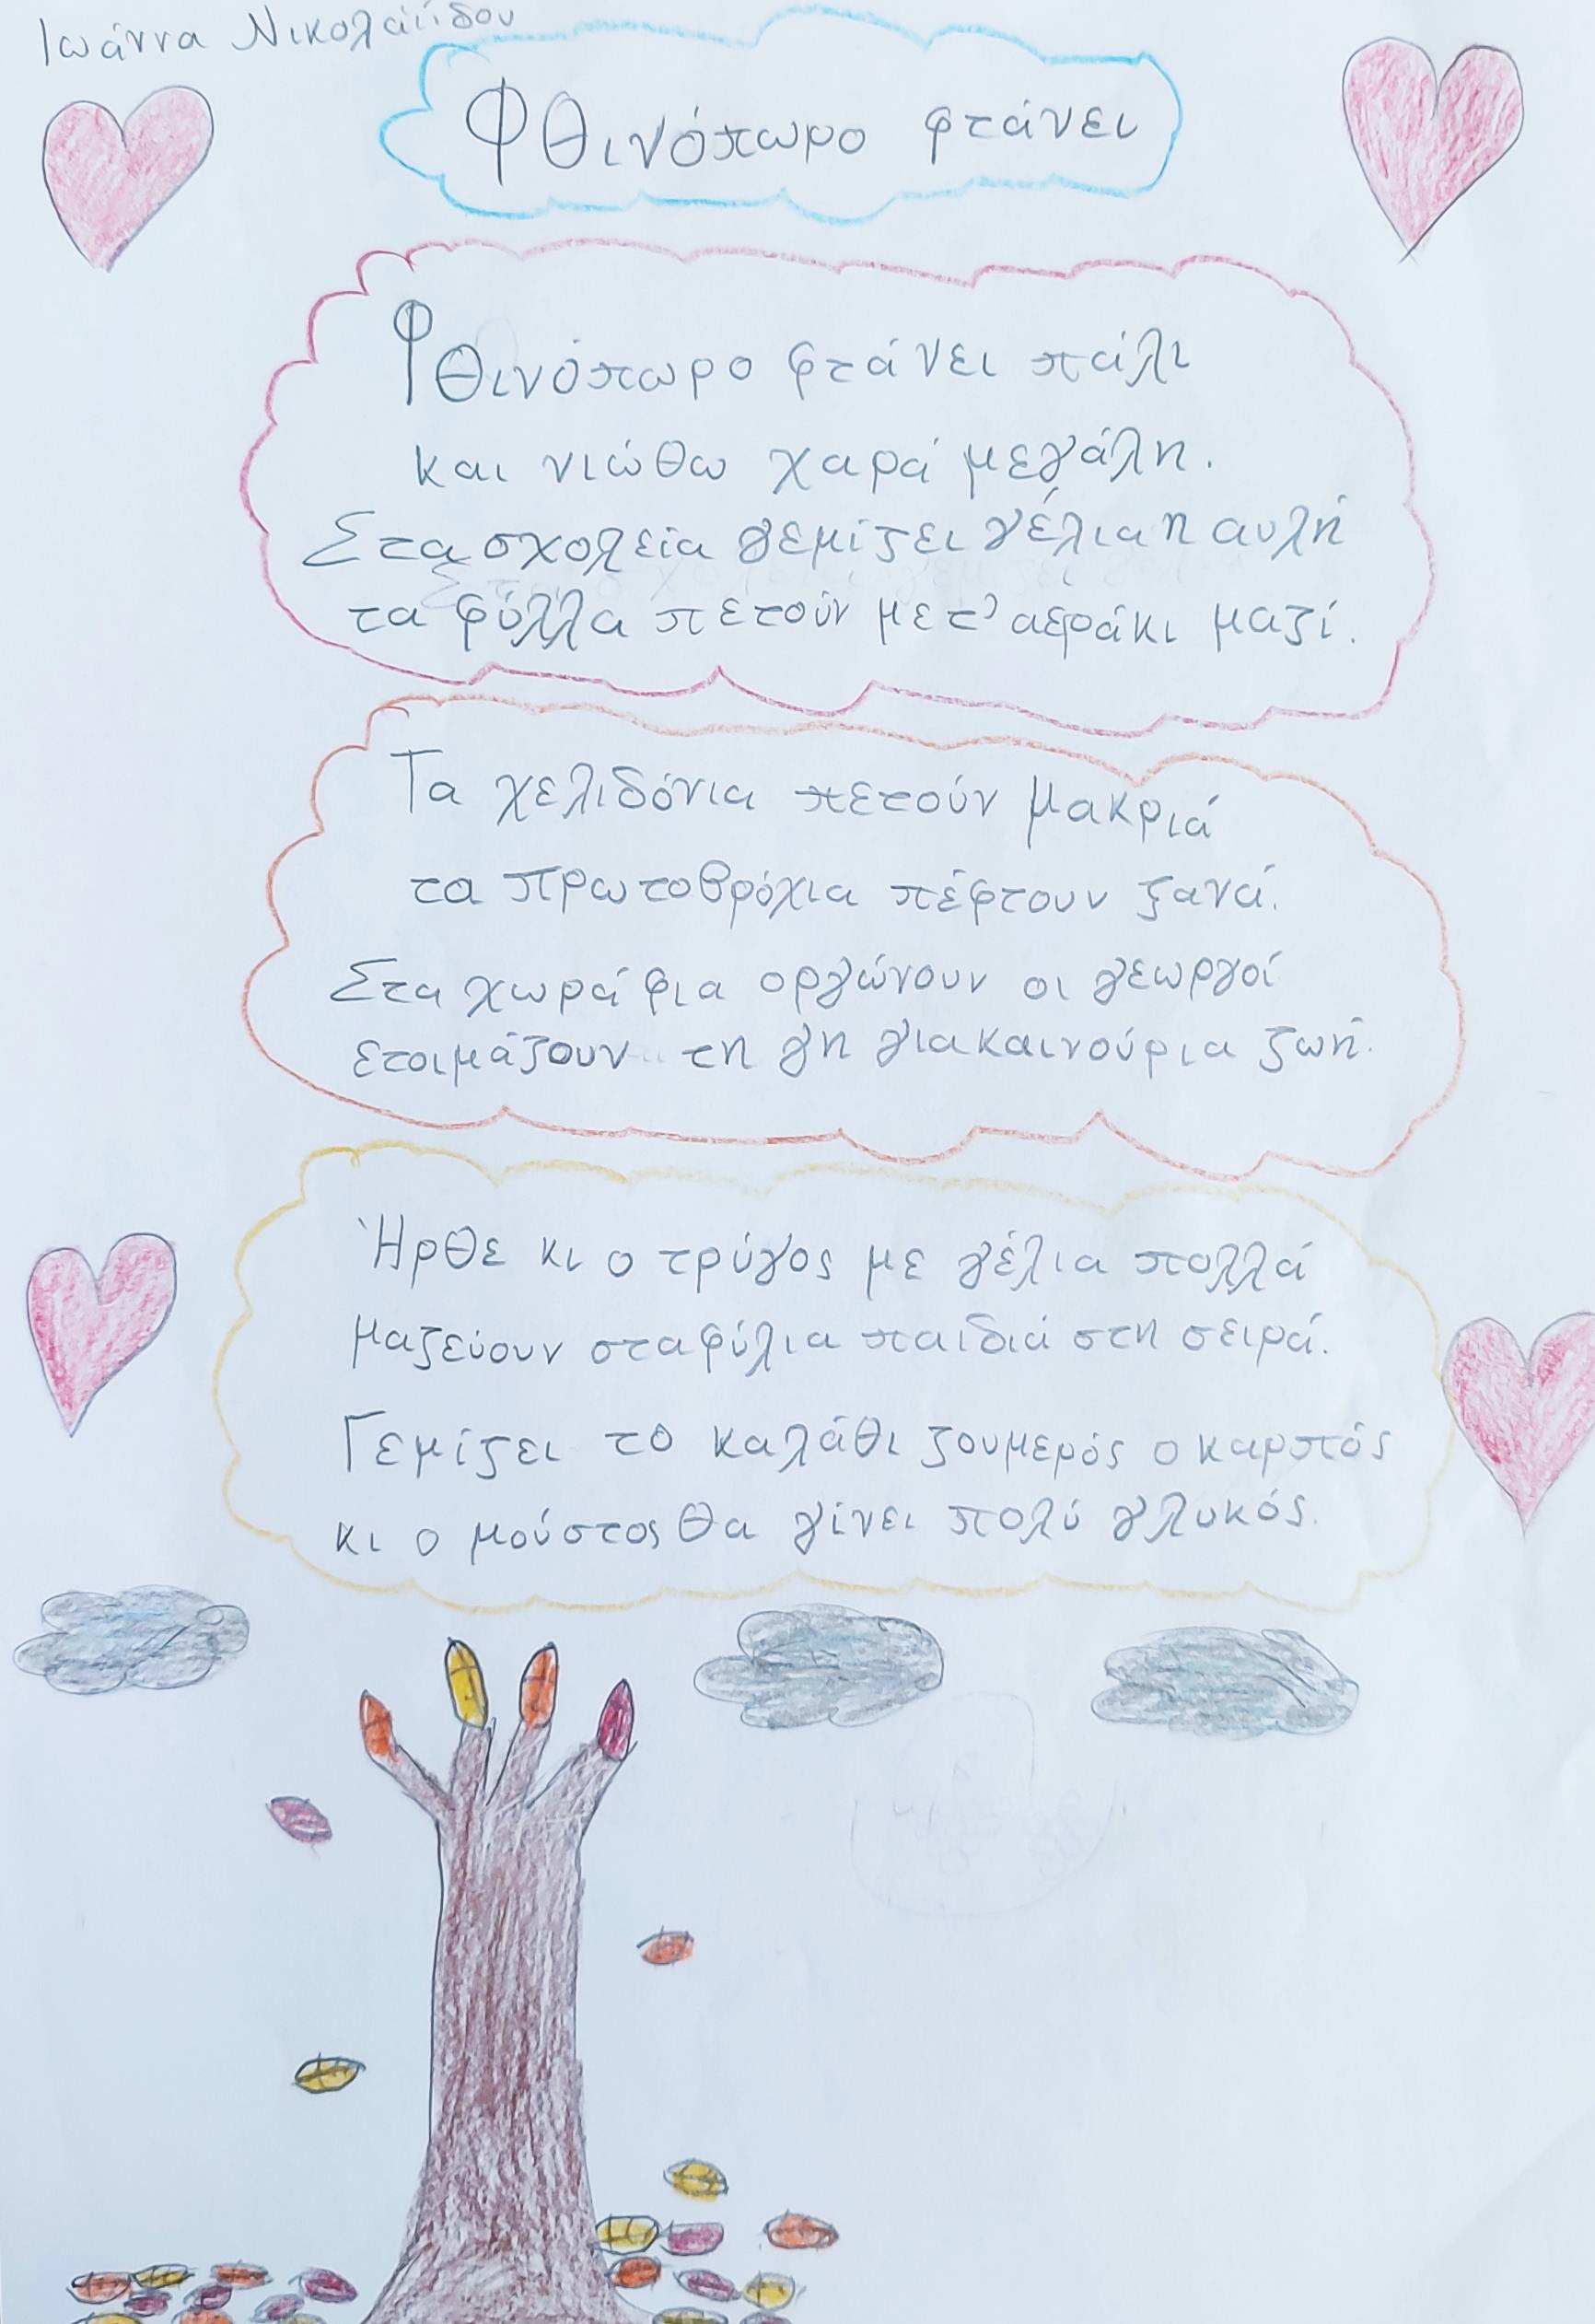 Ιωάννα Νικολαΐδου
Φθινόπωρο φτάνει
Φθινόπωρο φτάνει πάλι
και νιώθω χαρά μεγάλη.
Στα σχολεία γεμίζει γέλια η αυλή
τα φύλλα πετούν με τ' αεράκι μαζί.
Τα χελιδόνια πετούν μακριά
τα πρωτοβρόχια πέφτουν ξανά.
Στα χωράφια οργώνουν οι γεωργοί
ετοιμάζουν τη γη για καινούρια ζωή.
Ήρθε κι ο τρύγος με γέλια πολλά
μαζεύουν σταφύλια παιδιά στη σειρά.
Γεμίζει το καλάθι ζουμερός ο καρπός
κι ο μούστος θα γίνει πολύ γλυκός.